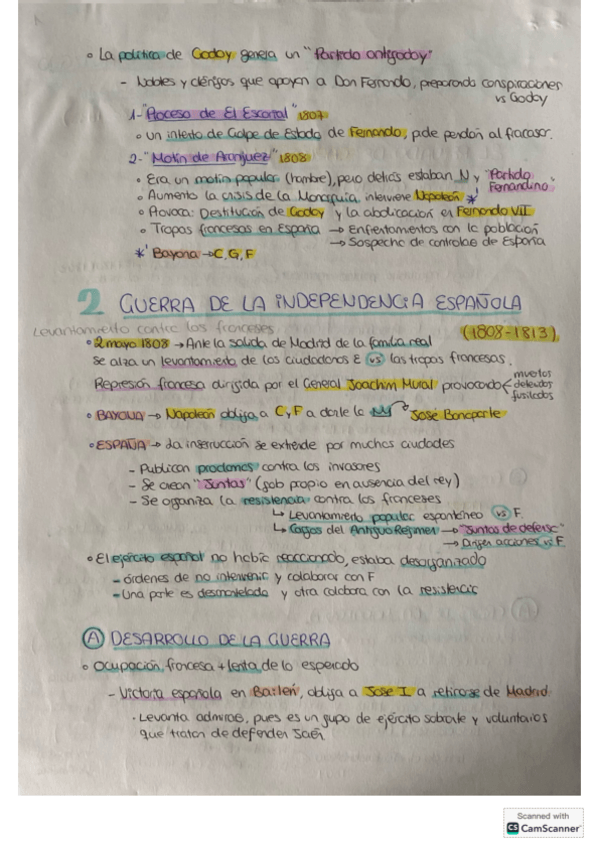 ◦ La política de Godoy genera un "Partido antigodoy"
- Nobles y clérigos que apoyan a Don Fernando, preparando conspiraciones
vs Godoy
1-"Proceso de El Escorial" 1807
◦ Un intento de Golpe de Estado de Fernando, pide perdón al fracasar.
2-"Motín de Aranjuez" 1808
◦ Era un motín popular (hambre), pero detrás estaban N y "Partido
Fernandino"
◦ Aumento la crisis de la Monarquía, interviene Napoleón *'
◦ Provoca: Destitución de Godoy y la abdicación en Fernando VII
◦ Tropas francesas en España → Enfrentamientos con la población
→ Sospecha de controlar España
*' Bayona → C, G, F
2 GUERRA DE LA INDEPENDENCIA ESPAÑOLA
Levantamiento contra los franceses
(1808-1813)
◦ 2 mayo 1808 → Ante la salida de Madrid de la familia real
se alza un levantamiento de los ciudadanos E vs las tropas francesas.
Represión francesa dirigida por el General Joachim Murat provocando < muertos
detenidos
fusilados
◦ BAYONA → Napoleón obliga a C y F a darle la → José Bonaparte
◦ ESPAÑA → La insurrucción se extiende por muchas ciudades
- Publican proclamas contra los invasores
- Se crean "Juntas" (gob propio en ausencia del rey)
- Se organiza la resistencia contra los franceses
↳ Levantamiento popular espontáneo vs F.
↳ Cargos del Antiguo Régimen → "Juntas de defensa"
→ Dirigen acciones vs F
◦ El ejército español no había reaccionado, estaba desorganizado
- órdenes de no intervenir y colaborar con F
- Una parte es desmantelada y otra colabora con la resistencia
A DESARROLLO DE LA GUERRA
◦ Ocupación francesa + lenta de lo esperado
- Victoria española en Bailén, obliga a Jose I a retirarse de Madrid.
· Levanta admirac, pues es un grupo de ejército sobrante y voluntarios
que tratan de defender Jaén
Scanned with
CS CamScanner